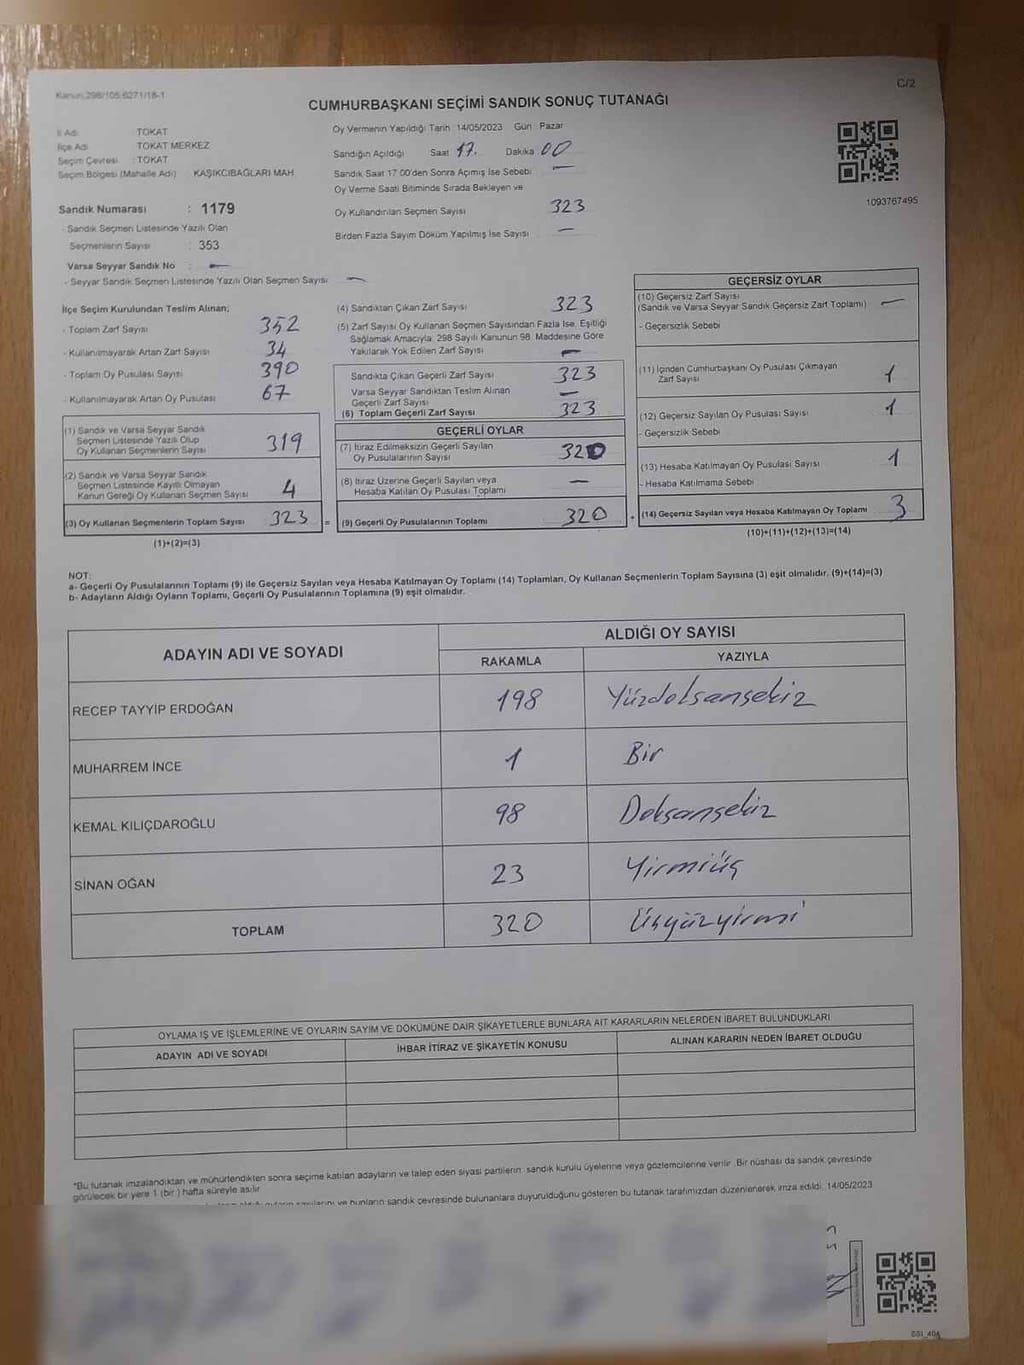 Kanun:298/105 6271/18-1
C/2
CUMHURBAŞKANI SEÇİMİ SANDIK SONUÇ TUTANAĞI
İl Adı : TOKAT
İlçe Adı : TOKAT MERKEZ
Seçim Çevresi : TOKAT
Seçim Bölgesi (Mahalle Adı) KAŞIKCIBAĞLARI MAH
Sandık Numarası : 1179
- Sandık Seçmen Listesinde Yazılı Olan
Seçmenlerin Sayısı : 353
Varsa Seyyar Sandık No : —
- Seyyar Sandık Seçmen Listesinde Yazılı Olan Seçmen Sayısı : —
Oy Vermenin Yapıldığı Tarih 14/05/2023 Gün Pazar
Sandığın Açıldığı Saat 17. Dakika 00
Sandık Saat 17:00'den Sonra Açımış İse Sebebi —
Oy Verme Saati Bitiminde Sırada Bekleyen ve
Oy Kullandırılan Seçmen Sayısı 323
Birden Fazla Sayım Döküm Yapılmış İse Sayısı —
1093767495
İlçe Seçim Kurulundan Teslim Alınan;
- Toplam Zarf Sayısı 352
- Kullanılmayarak Artan Zarf Sayısı 34
- Toplam Oy Pusulası Sayısı 390
- Kullanılmayarak Artan Oy Pusulası 67
(1) Sandık ve Varsa Seyyar Sandık
Seçmen Listesinde Yazılı Olup
Oy Kullanan Seçmenlerin Sayısı 319
(2) Sandık ve Varsa Seyyar Sandık
Seçmen Listesinde Kayıtlı Olmayan
Kanun Gereği Oy Kullanan Seçmen Sayısı 4
(3) Oy Kullanan Seçmenlerin Toplam Sayısı 323 =
(1)+(2)=(3)
(4) Sandıktan Çıkan Zarf Sayısı 323
(5) Zarf Sayısı Oy Kullanan Seçmen Sayısından Fazla İse, Eşitliği
Sağlamak Amacıyla, 298 Sayılı Kanunun 98. Maddesine Göre
Yakılarak Yok Edilen Zarf Sayısı —
Sandıkta Çıkan Geçerli Zarf Sayısı 323
Varsa Seyyar Sandıktan Teslim Alınan
Geçerli Zarf Sayısı —
(6) Toplam Geçerli Zarf Sayısı 323
GEÇERLİ OYLAR
(7) İtiraz Edilmeksizin Geçerli Sayılan
Oy Pusulalarının Sayısı 320
(8) İtiraz Üzerine Geçerli Sayılan veya
Hesaba Katılan Oy Pusulası Toplamı —
(9) Geçerli Oy Pusulalarının Toplamı 320 +
GEÇERSİZ OYLAR
(10) Geçersiz Zarf Sayısı
(Sandık ve Varsa Seyyar Sandık Geçersiz Zarf Toplamı) —
- Geçersizlik Sebebi
(11) İçinden Cumhurbaşkanı Oy Pusulası Çıkmayan
Zarf Sayısı 1
(12) Geçersiz Sayılan Oy Pusulası Sayısı 1
- Geçersizlik Sebebi
(13) Hesaba Katılmayan Oy Pusulası Sayısı 1
- Hesaba Katılmama Sebebi
(14) Geçersiz Sayılan veya Hesaba Katılmayan Oy Toplamı 3
(10)+(11)+(12)+(13)=(14)
NOT:
a- Geçerli Oy Pusulalarının Toplamı (9) ile Geçersiz Sayılan veya Hesaba Katılmayan Oy Toplamı (14) Toplamları, Oy Kullanan Seçmenlerin Toplam Sayısına (3) eşit olmalıdır. (9)+(14)=(3)
b- Adayların Aldığı Oyların Toplamı, Geçerli Oy Pusulalarının Toplamına (9) eşit olmalıdır.
ADAYIN ADI VE SOYADI ALDIĞI OY SAYISI
RAKAMLA YAZIYLA
RECEP TAYYİP ERDOĞAN 198 Yüzdoksansekiz
MUHARREM İNCE 1 Bir
KEMAL KILIÇDAROĞLU 98 Doksansekiz
SİNAN OĞAN 23 Yirmiüç
TOPLAM 320 Üçyüzyirmi
OYLAMA İŞ VE İŞLEMLERİNE VE OYLARIN SAYIM VE DÖKÜMÜNE DAİR ŞİKAYETLERLE BUNLARA AİT KARARLARIN NELERDEN İBARET BULUNDUKLARI
ADAYIN ADI VE SOYADI İHBAR İTİRAZ VE ŞİKAYETİN KONUSU ALINAN KARARIN NEDEN İBARET OLDUĞU
*Bu tutanak imzalandıktan ve mühürlendikten sonra seçime katılan adayların ve talep eden siyasi partilerin sandık kurulu üyelerine veya gözlemcilerine verilir. Bir nüshası da sandık çevresinde
görülecek bir yere 1 (bir) hafta süreyle asılır.
ve bunların sandık çevresinde bulunanlara duyurulduğunu gösteren bu tutanak tarafımızdan düzenlenerek imza edildi. 14/05/2023